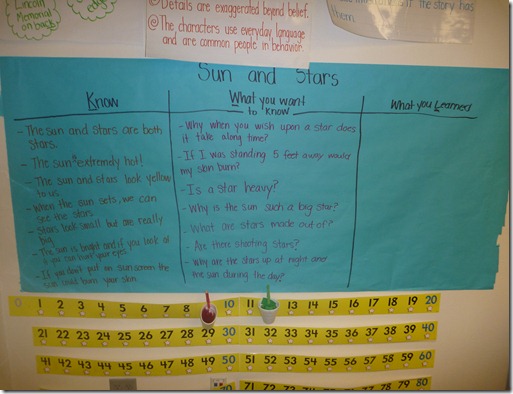 Lincoln
Memorial
on back
@Details are exaggerated beyond belief.
@The characters use everyday language
and are common people in behavior.
if the story has
them
Sun and Stars
Know
What you want
to know
What you Learned
- The sun and stars are both
stars.
- The sun is extremely hot!
- The sun and stars look yellow
to us.
- When the sun sets, we can
see the stars.
- Stars look small but are really
big.
- The sun is bright and if you look at
it you can burn your eyes.
- If you don't put on sunscreen the
sun could burn your skin.
- Why when you wish upon a star does
it take along time?
- If I was standing 5 feet away would
my skin burn?
- Is a star heavy?
- Why is the sun such a big star?
- What are stars made out of?
- Are there shooting stars?
- Why are the stars up at night and
the sun during the day?
0 1 2 3 4 5 6 7 8 10 11 13 14 15 16 17 18 19 20
21 22 23 24 25 26 27 28 29 30 31 32 33 34 35 36 37 38 39 40
41 42 43 44 45 46 47 48 49 50 51 52 53 54 55 56 57 58 59 60
71 72 73 74 75 76 77 78 79 80